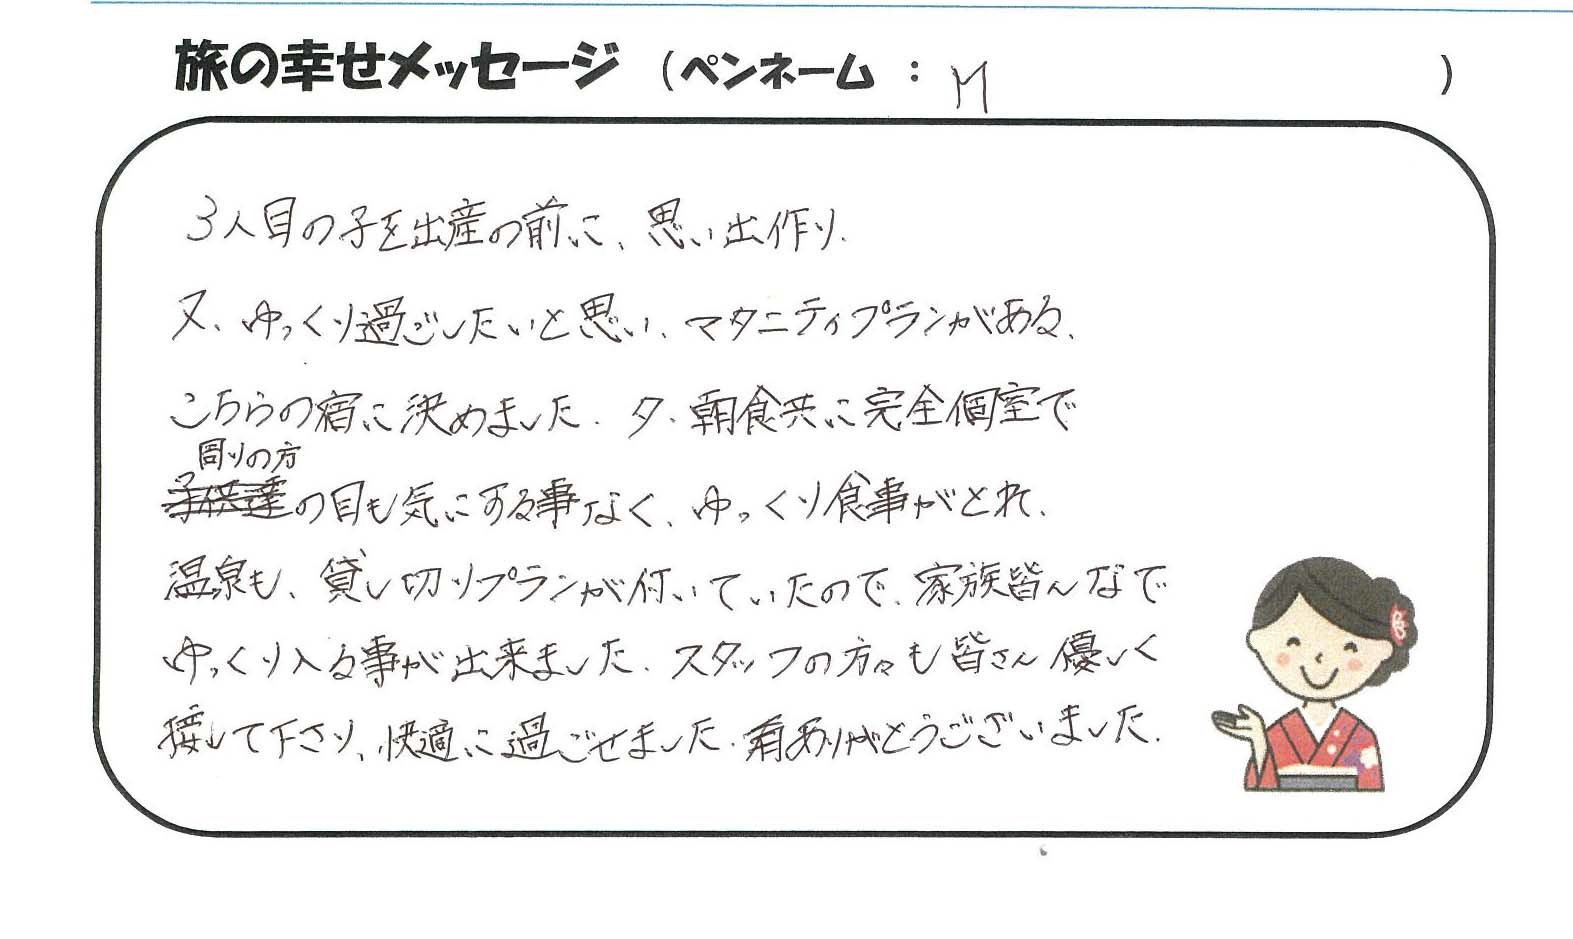 旅の幸せメッセージ (ペンネーム : M )
3人目の子を出産の前に、思い出作り、
又、ゆっくり過ごしたいと思い、マタニティプランがある、
こちらの宿に決めました。夕、朝食共に完全個室で
周りの方
子供達の目も気にする事なく、ゆっくり食事がとれ、
温泉も、貸し切りプランが付いていたので、家族皆んなで
ゆっくり入る事が出来ました。スタッフの方々も皆さん優しく
接して下さり、快適に過ごせました。ありがとうございました。